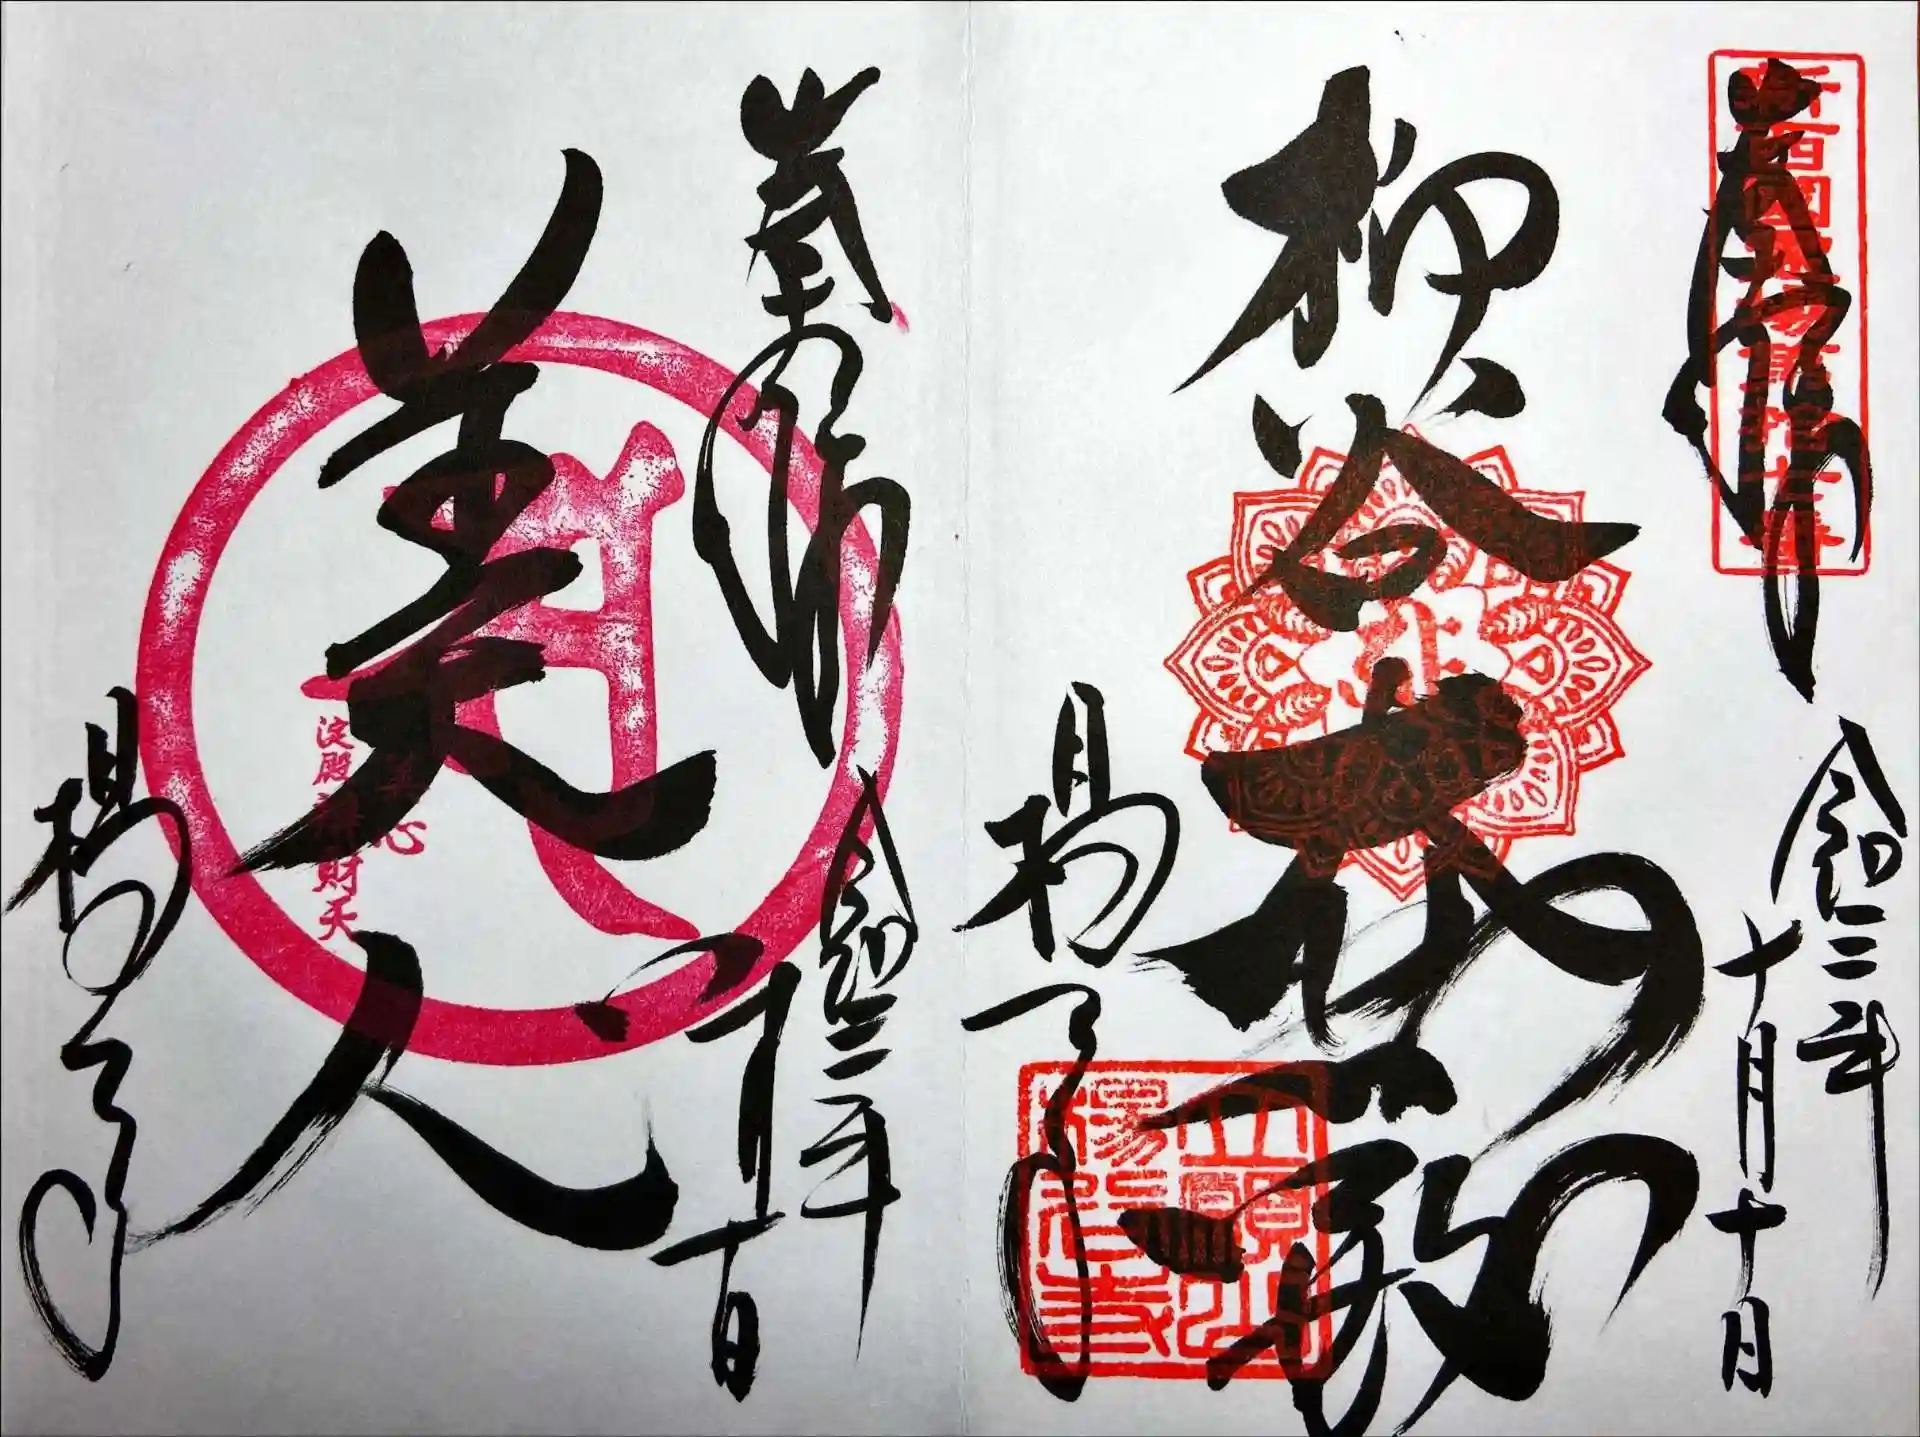 奉拝
新西國霊場第拾七番
令和二年
十月十日
柳谷大悲殿
立願山
楊谷寺
楊谷寺
奉拝
令和二年
十月十日
美人
淀殿弁財天
心
楊谷寺